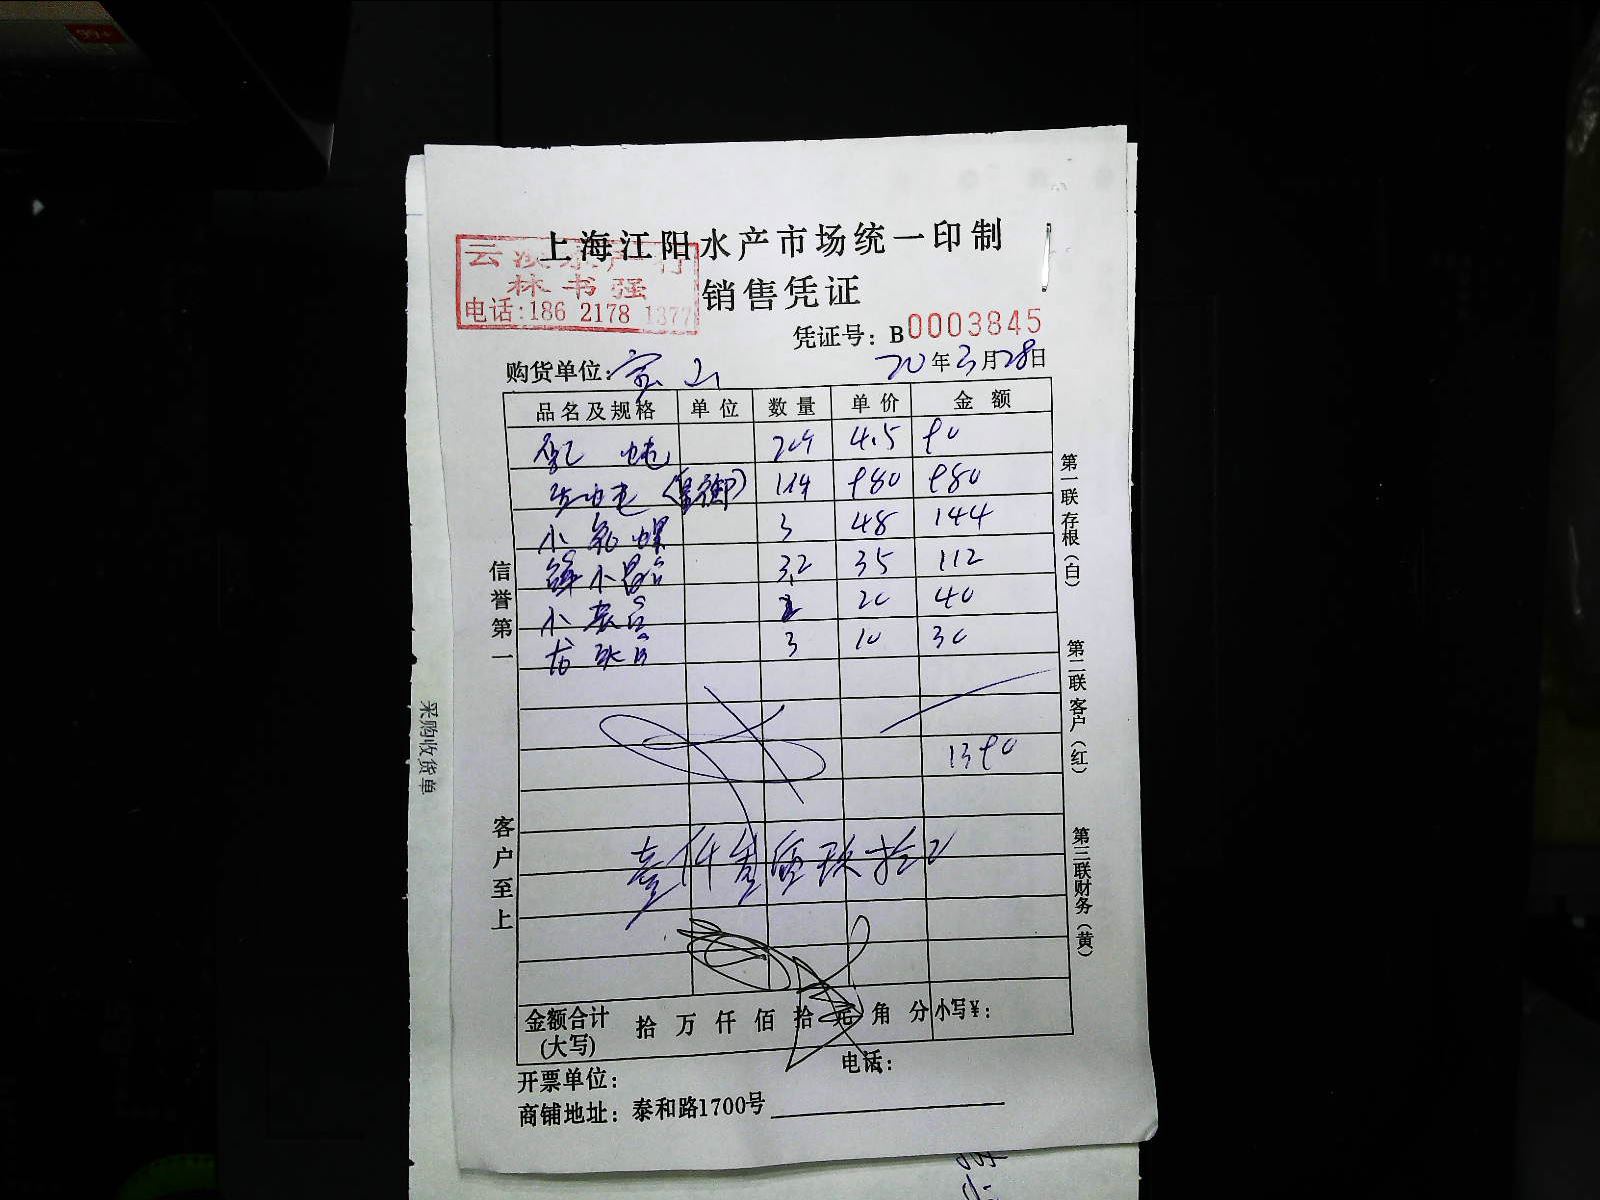 99+
上海江阳水产市场统一印制
云 水产行
林书强
电话:186 2178 1377
销售凭证
凭证号: B0003845
购货单位: 宝山
20年3月28日
品名及规格 单位 数量 单价 金额
4.5 90
980 980
小 螺 3 48 144
鲜小 3.2 35 112
小 2 20 40
龙 3 10 30
1390
壹仟 佰玖拾
金额合计(大写) 拾 万 仟 佰 拾 元 角 分 小写¥:
开票单位: 电话:
商铺地址: 泰和路1700号
信誉第一
客户至上
第一联 存根(白)
第二联 客户(红)
第三联 财务(黄)
采购收货单